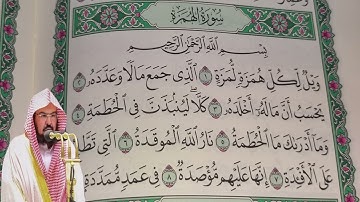 سُورَةُ الهُمَزَةِ
بِسْمِ اللَّهِ الرَّحْمَٰنِ الرَّحِيمِ
وَيْلٌ لِّكُلِّ هُمَزَةٍ لُّمَزَةٍ ١ الَّذِى جَمَعَ مَالًا وَعَدَّدَهُ ٢
يَحْسَبُ أَنَّ مَالَهُ أَخْلَدَهُ ٣ كَلَّا لَيُنۢبَذَنَّ فِى الْحُطَمَةِ ٤
وَمَا أَدْرَىٰكَ مَا الْحُطَمَةُ ٥ نَارُ اللَّهِ الْمُوقَدَةُ ٦ الَّتِى تَطَّ
عَلَى الْأَفْـِٔدَةِ ٧ إِنَّهَا عَلَيْهِم مُّؤْصَدَةٌ ٨ فِى عَمَدٍ مُّمَدَّدَةٍ